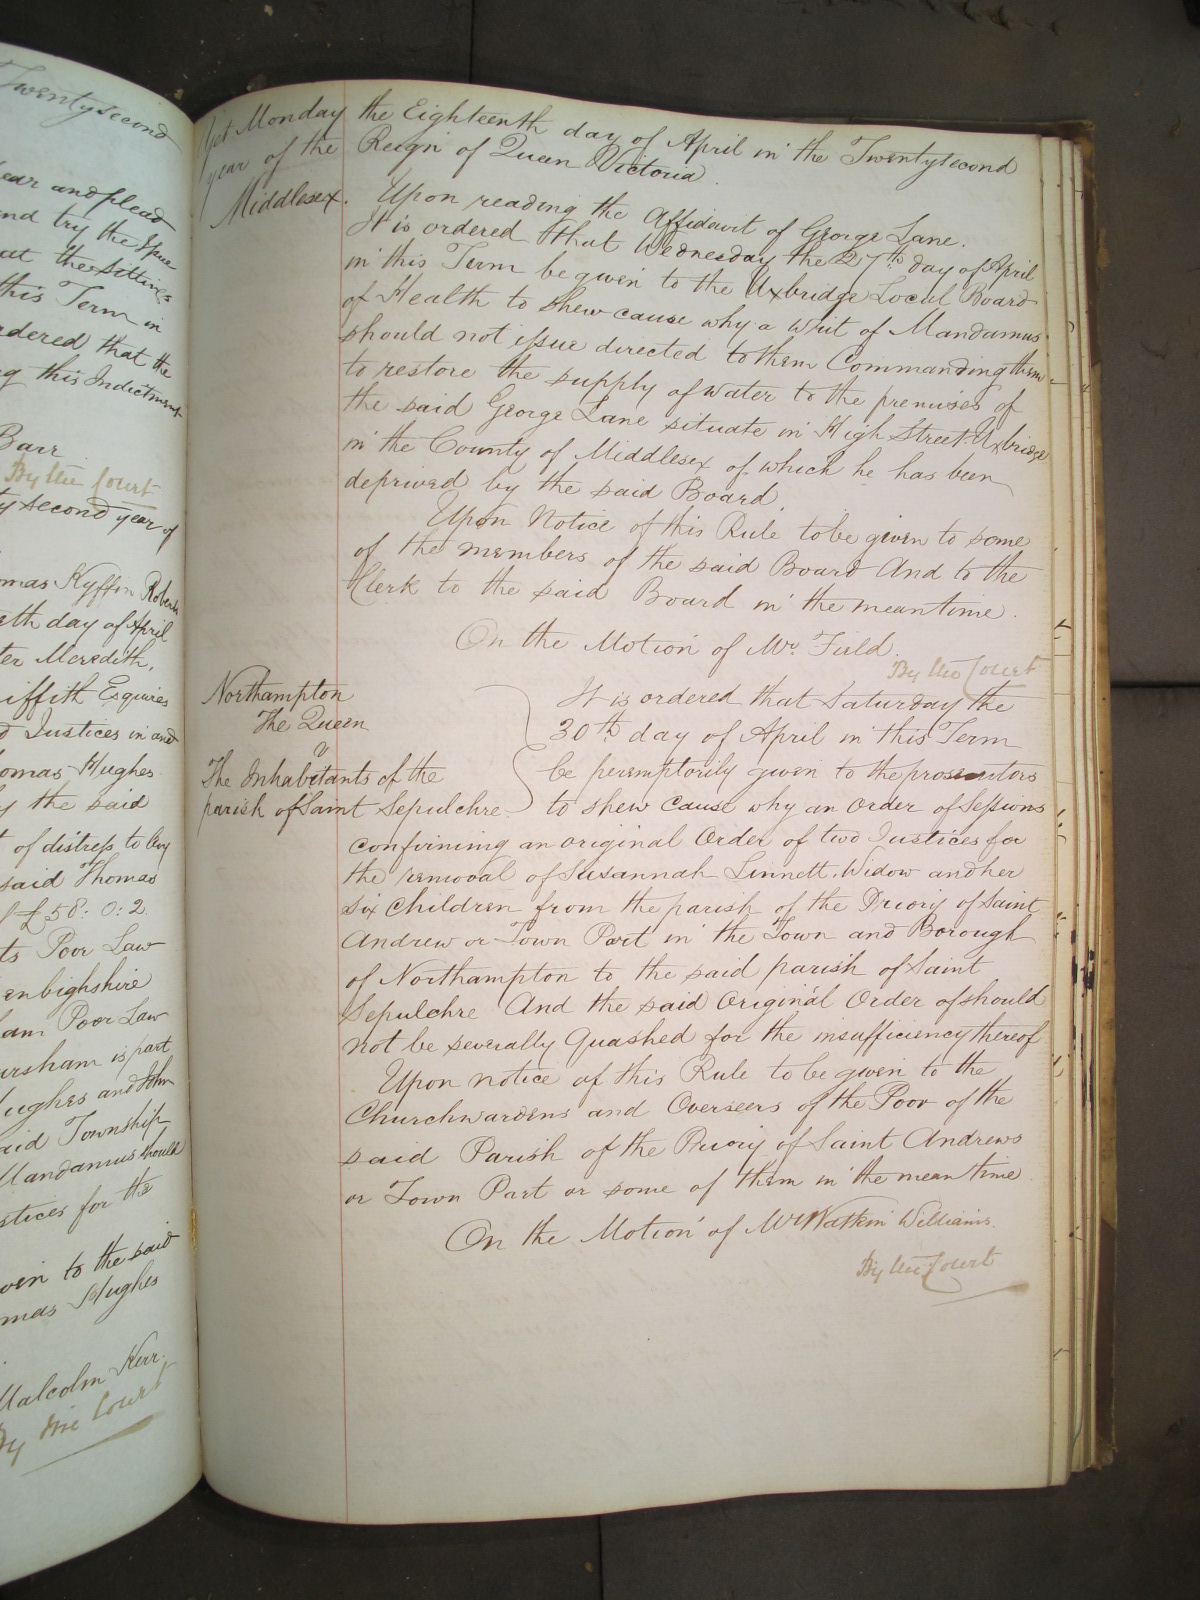 Twentysecond
ear and plead
and try the Issue
at the Sittings
this Term in
rdered that the
ng this Indictment
Barr
By the Court
ty second year of
mas Kyffin Roberts
eth day of April
ter Meredith,
iffith Esquires
d Justices in and
homas Hughes
y the said
t of distress to levy
said Thomas
f £58: 0: 2
ts Poor Law
enbighshire
ham Poor Law
ursham is part
Hughes and John
aid Township
Mandamus should
stices for the
ven to the said
mas Hughes
Malcolm Kerr.
By the Court
Yet Monday the Eighteenth day of April in the Twentysecond
year of the Reign of Queen Victoria.
Middlesex. Upon reading the Affidavit of George Lane.
It is ordered that Wednesday the 27th day of April
in this Term be given to the Uxbridge Local Board
of Health to shew cause why a Writ of Mandamus
should not issue directed to them Commanding them
to restore the supply of water to the premises of
the said George Lane situate in High Street Uxbridge
in the County of Middlesex of which he has been
deprived by the said Board.
Upon Notice of this Rule to be given to some
of the members of the said Board And to the
Clerk to the said Board in the meantime.
On the Motion of Mr. Field.
By the Court
Northampton
The Queen
v
The Inhabitants of the
parish of Saint Sepulchre
It is ordered that Saturday the
30th day of April in this Term
be peremptorily given to the prosecutors
to shew cause why an order of Sessions
confirming an original Order of two Justices for
the removal of Susannah Linnett, Widow and her
six Children from the parish of the Priory of Saint
Andrew or Town Part in the Town and Borough
of Northampton to the said parish of Saint
Sepulchre And the said Original Order of should
not be severally Quashed for the insufficiency thereof
Upon notice of this Rule to be given to the
Churchwardens and Overseers of the Poor of the
said Parish of the Priory of Saint Andrews
or Town Part or some of them in the mean time.
On the Motion of Mr Watkin Williams.
By the Court